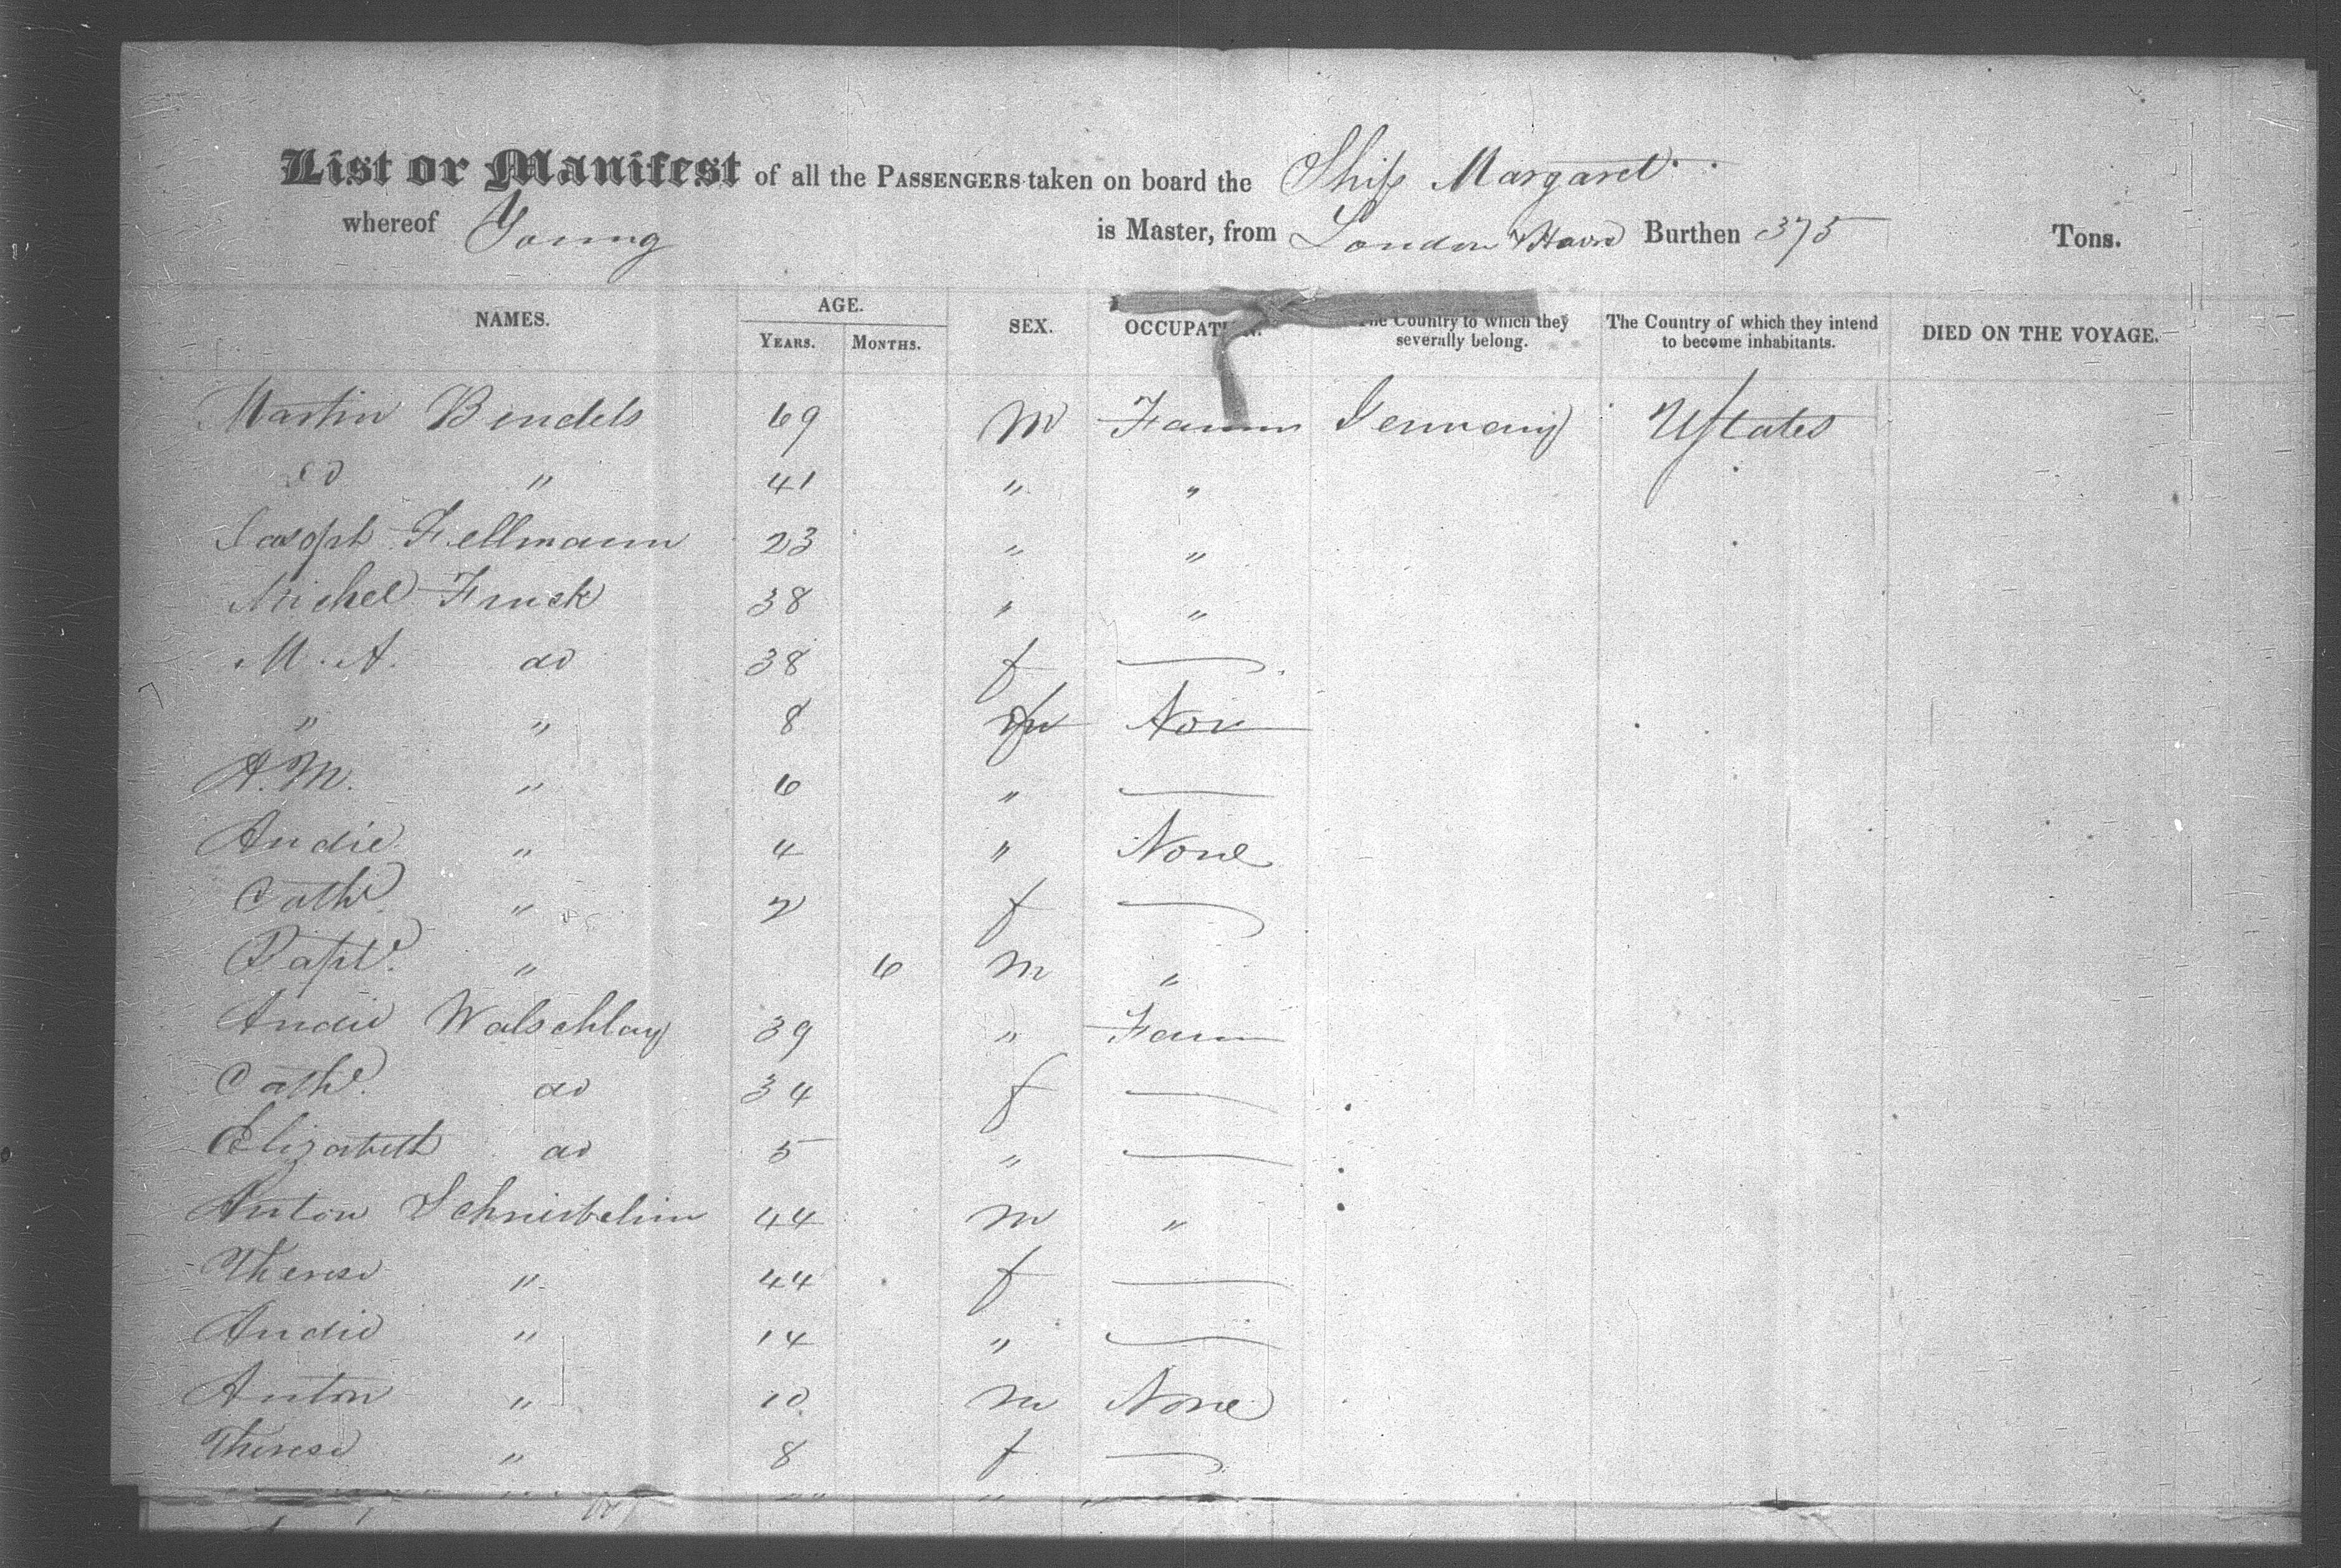 List or Manifest of all the PASSENGERS taken on board the Ship Margaret
whereof Young is Master, from London & Havre Burthen 375 Tons.
NAMES. AGE. YEARS. MONTHS. SEX. OCCUPATION. The Country to which they severally belong. The Country of which they intend to become inhabitants. DIED ON THE VOYAGE.
Martin Bendels 69 M Farm Germany U States
do " 41 " "
Joseph Fellmann 23 " "
Michel Fruck 38 " "
M. A. do 38 f —
" " 8 m None
A. M. " 6 " —
Andie " 4 " None
Cathe " 2 f —
Bapt. " 6 m "
Andie Walschlag 39 " Farm
Cathe do 34 f —
Elizabeth do 5 " —
Anton Schnieibelin 44 m "
Therese " 44 f —
Andie " 14 " —
Anton " 10 m None
Therese " 8 f —